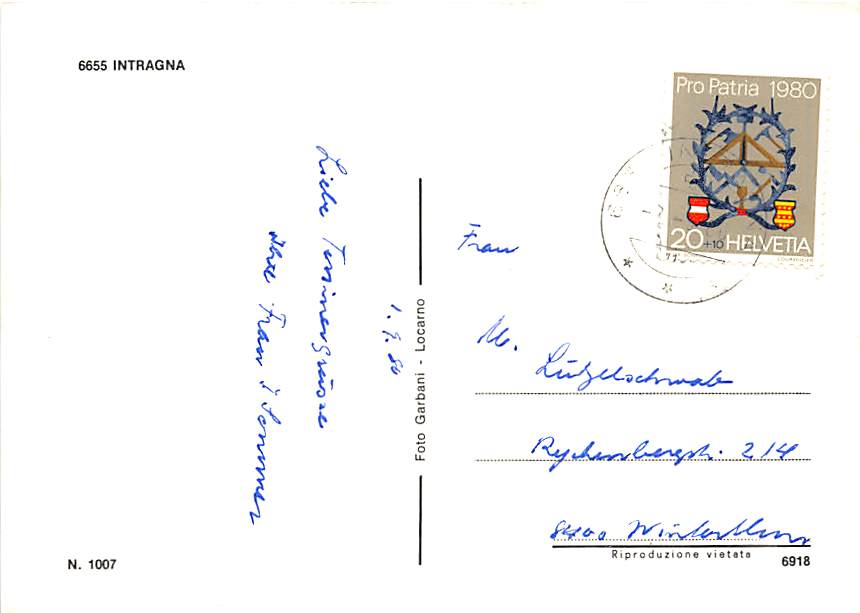 6655 INTRAGNA
Pro Patria 1980
20+10 HELVETIA
COURVOISIER
1. 7. 80
Liebe Tessinergrüsse
Ihre Frau Sommer
Foto Garbani - Locarno
Frau
M. Lützelschwab
Rychenbergstr. 214
8400 Winterthur
Riproduzione vietata
N. 1007
6918